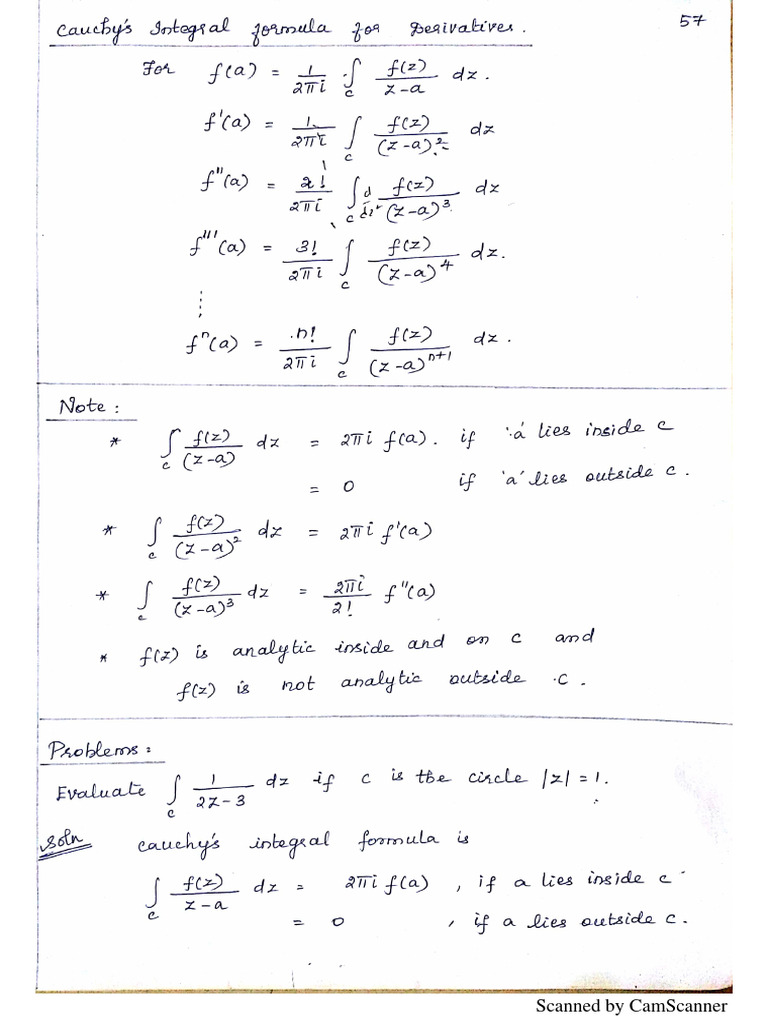 57
Cauchy's Integral formula for Derivatives.
For f(a) = 1/2πi ∫c f(z)/z-a dz.
f'(a) = 1/2πi ∫c f(z)/(z-a)² dz
f''(a) = 2!/2πi ∫c f(z)/(z-a)³ dz
f'''(a) = 3!/2πi ∫c f(z)/(z-a)⁴ dz.
⋮
fⁿ(a) = n!/2πi ∫c f(z)/(z-a)ⁿ⁺¹ dz.
Note :
* ∫c f(z)/(z-a) dz = 2πi f(a). if 'a' lies inside c
= 0 if 'a' lies outside c.
* ∫c f(z)/(z-a)² dz = 2πi f'(a)
* ∫c f(z)/(z-a)³ dz = 2πi/2! f''(a)
* f(z) is analytic inside and on c and
f(z) is not analytic outside c.
Problems :
Evaluate ∫c 1/2z-3 dz if c is the circle |z| = 1.
Soln Cauchy's integral formula is
∫c f(z)/z-a dz = 2πi f(a) , if a lies inside c
= 0 , if a lies outside c.
Scanned by CamScanner